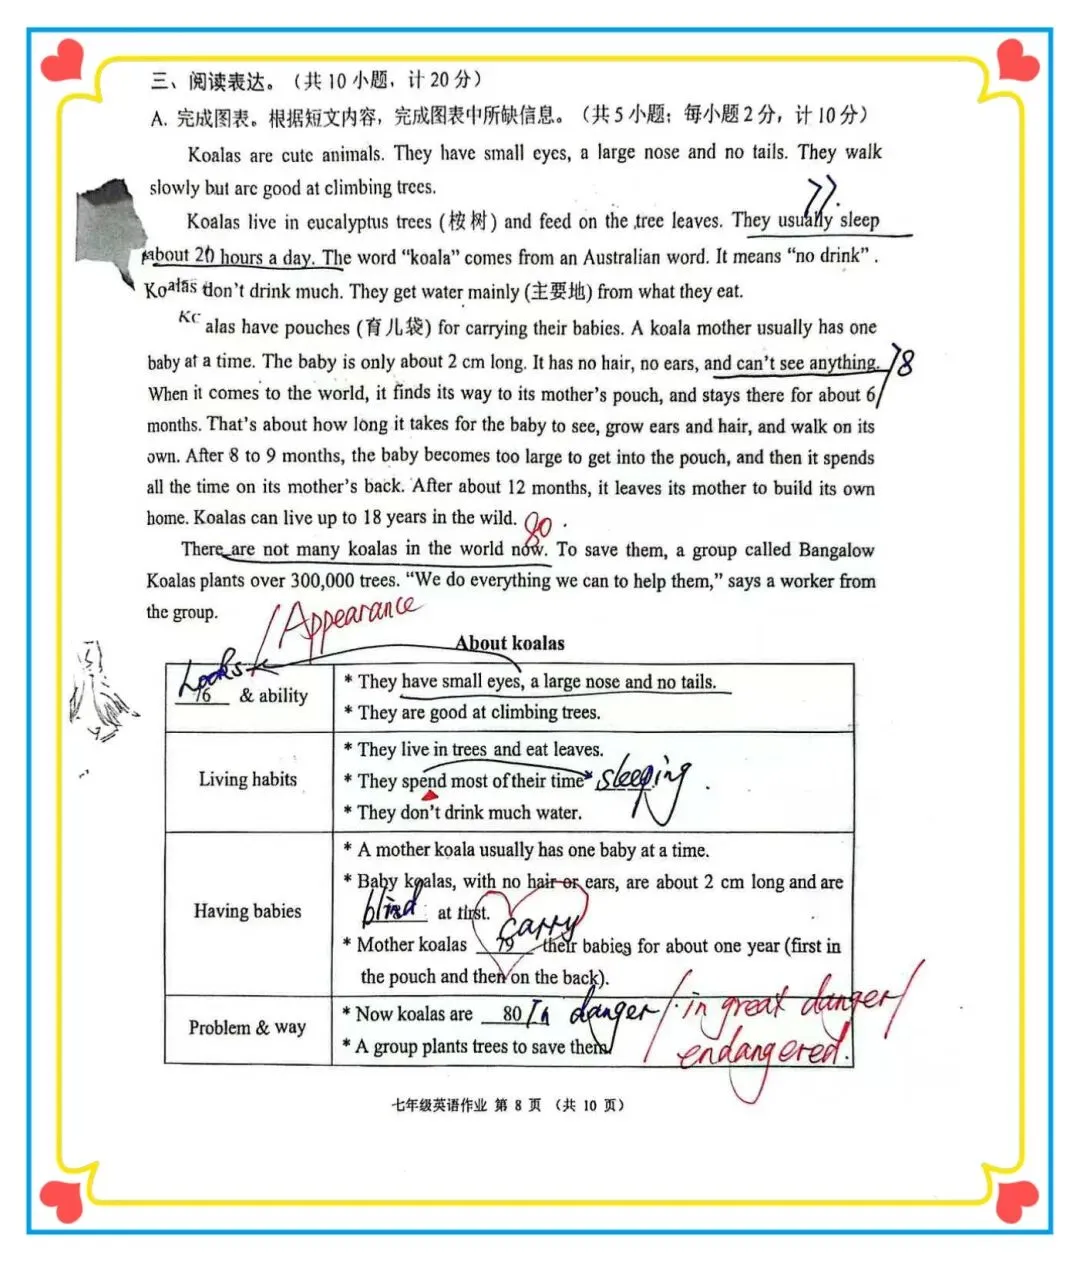 三、阅读表达。（共 10 小题，计 20 分）
A. 完成图表。根据短文内容，完成图表中所缺信息。（共 5 小题；每小题 2 分，计 10 分）
Koalas are cute animals. They have small eyes, a large nose and no tails. They walk
slowly but are good at climbing trees.
77.
Koalas live in eucalyptus trees (桉树) and feed on the tree leaves. They usually sleep
about 20 hours a day. The word “koala” comes from an Australian word. It means “no drink”.
Koalas don’t drink much. They get water mainly (主要地) from what they eat.
Koalas have pouches (育儿袋) for carrying their babies. A koala mother usually has one
baby at a time. The baby is only about 2 cm long. It has no hair, no ears, and can’t see anything. 78
When it comes to the world, it finds its way to its mother’s pouch, and stays there for about 6
months. That’s about how long it takes for the baby to see, grow ears and hair, and walk on its
own. After 8 to 9 months, the baby becomes too large to get into the pouch, and then it spends
all the time on its mother’s back. After about 12 months, it leaves its mother to build its own
home. Koalas can live up to 18 years in the wild.
80.
There are not many koalas in the world now. To save them, a group called Bangalow
Koalas plants over 300,000 trees. “We do everything we can to help them,” says a worker from
the group.
/Appearance
About koalas
Looks
76 & ability
* They have small eyes, a large nose and no tails.
* They are good at climbing trees.
Living habits
* They live in trees and eat leaves.
* They spend most of their time sleeping.
* They don’t drink much water.
Having babies
* A mother koala usually has one baby at a time.
* Baby koalas, with no hair or ears, are about 2 cm long and are
blind at first.
carry
* Mother koalas 79 their babies for about one year (first in
the pouch and then on the back).
Problem & way
* Now koalas are 80 In danger / in great danger /
endangered.
* A group plants trees to save them.
七年级英语作业 第 8 页 （共 10 页）